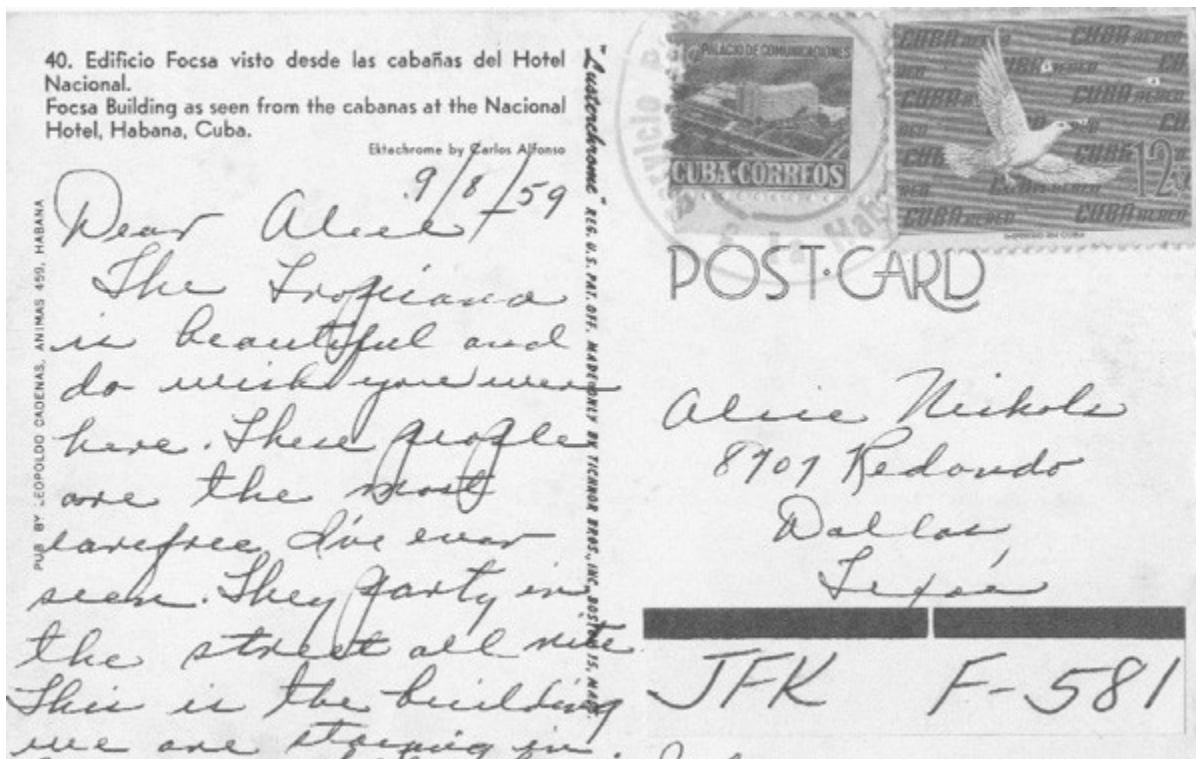 40. Edificio Focsa visto desde las cabañas del Hotel
Nacional.
Focsa Building as seen from the cabanas at the Nacional
Hotel, Habana, Cuba.
Ektachrome by Carlos Alfonso
9/8/59
Dear Alice,
The Tropicana
is beautiful and
do wish you were
here. These people
are the most
carefree I've ever
seen. They party in
the street all nite.
This is the building
we are staying in.
PUB BY LEOPOLDO CADENAS, ANIMAS 459, HABANA
"Lusterchrome" REG. U.S. PAT. OFF. MADE ONLY BY TICHNOR BROS., INC., BOSTON 15, MASS.
PALACIO DE COMUNICACIONES
CUBA·CORREOS
CUBA AEREO
12¢
POST·CARD
Alice Nichols
8707 Redondo
Dallas
Texas
JFK F-581